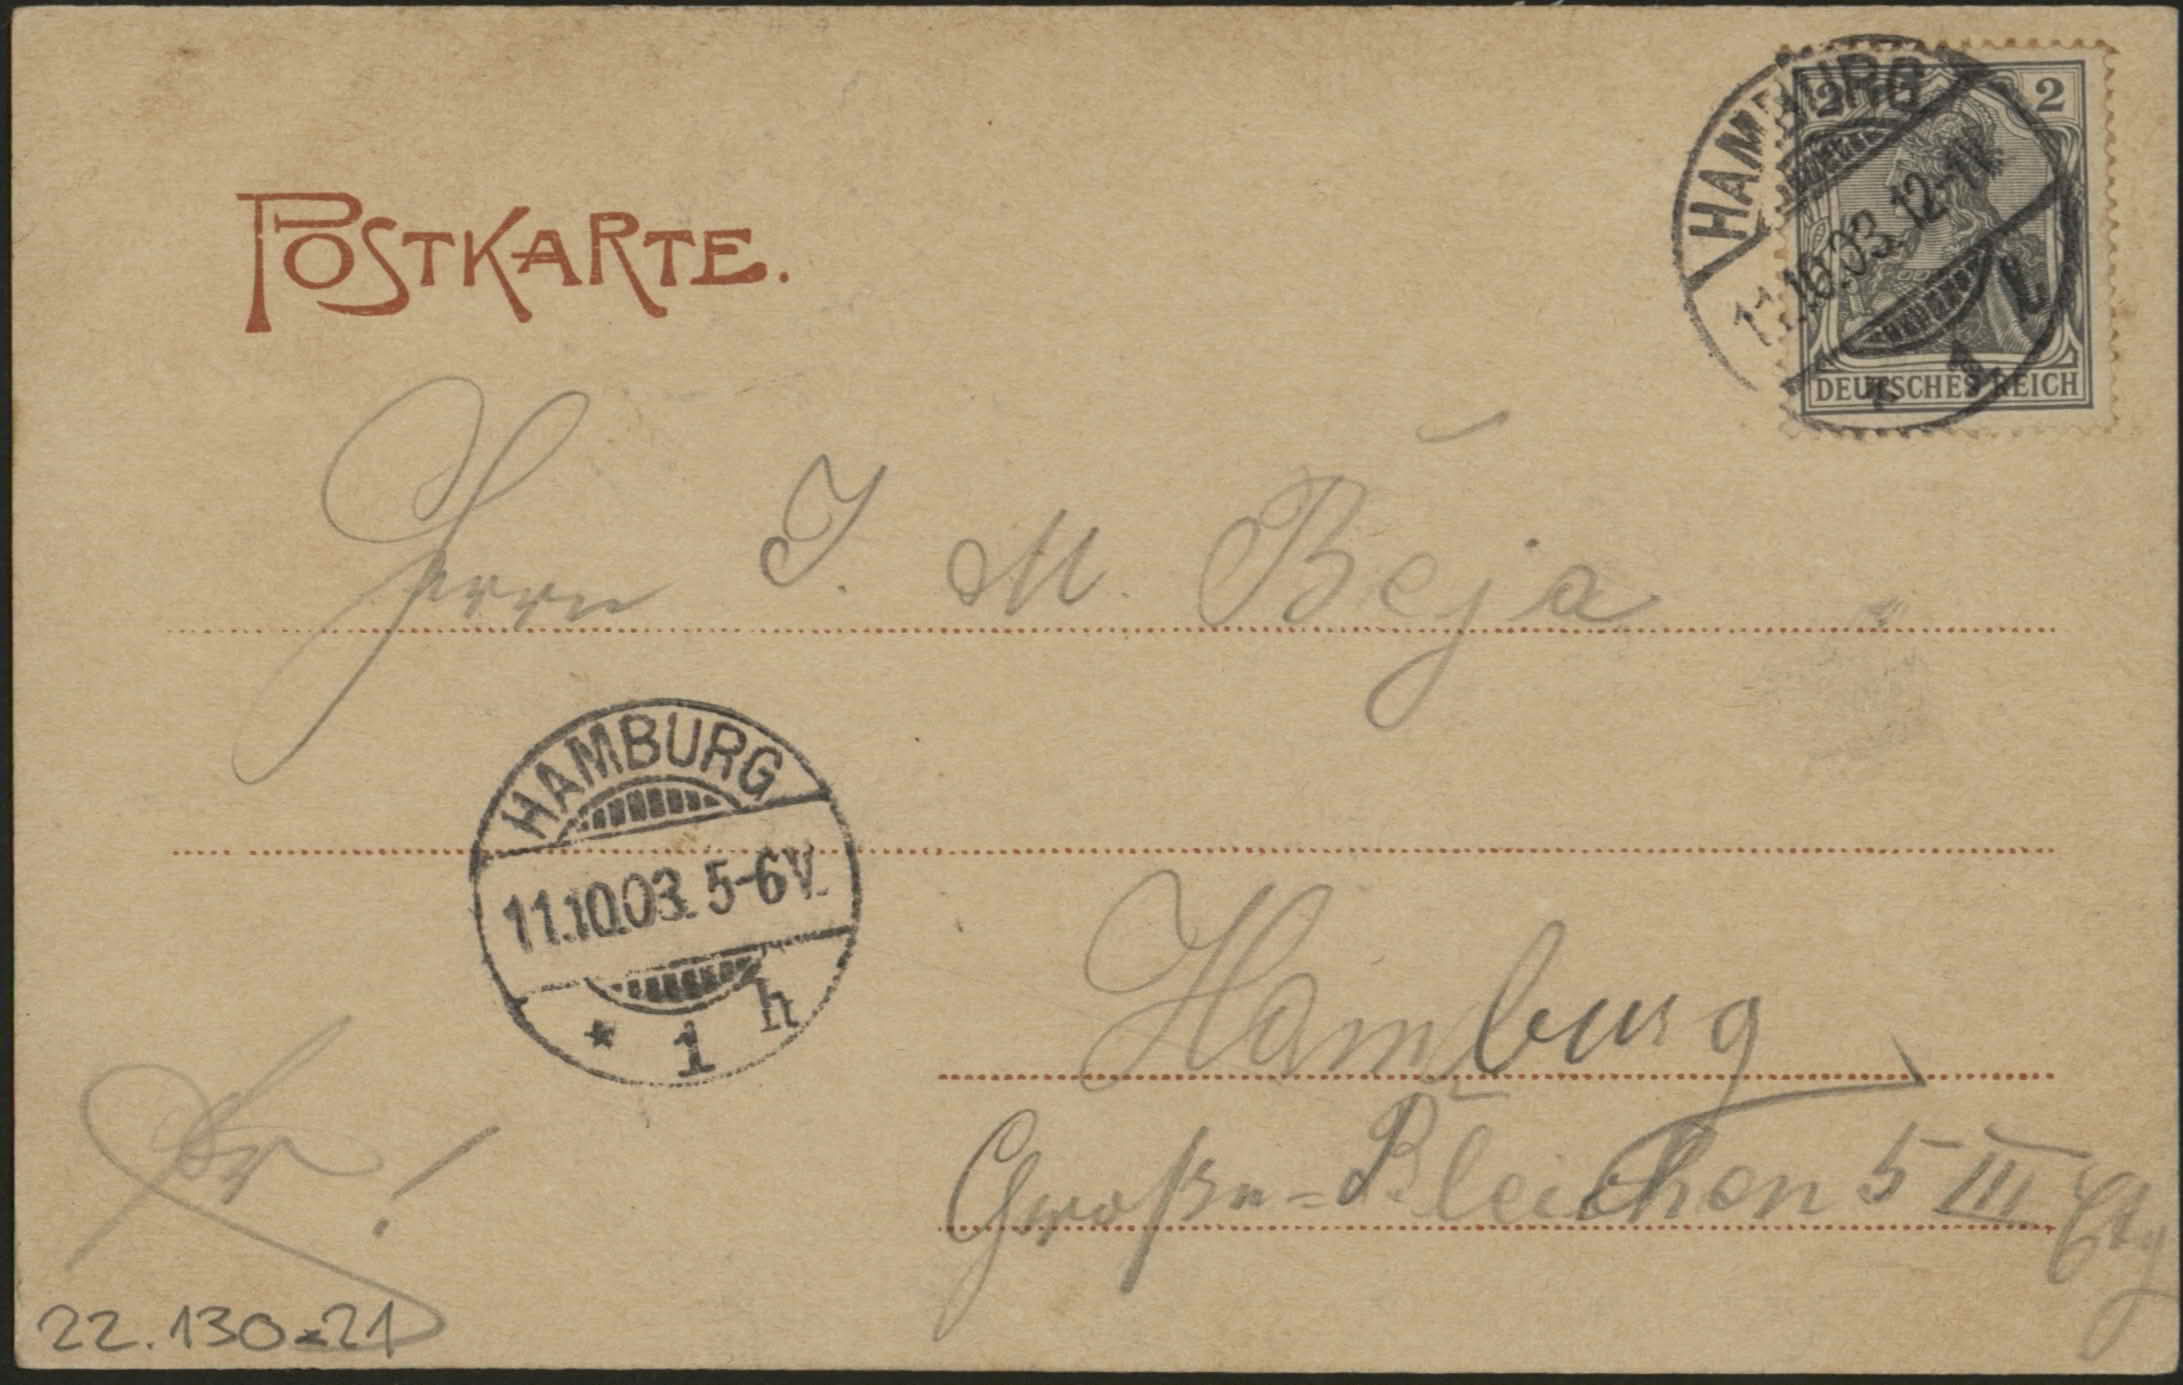 POSTKARTE.
HAMBURG
11.10.03. 12-1V.
1 l
2 2
DEUTSCHES REICH
Herrn J. M. Béja
HAMBURG
11.10.03. 5-6V.
* 1 h
Hamburg
Große-Bleichen 5 III Etg
Fr!
22.130-21